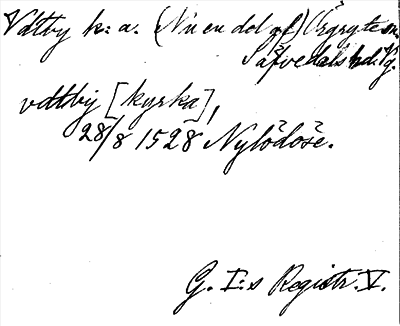 Valtby k: a. (Nu en del af) Örgryte sn.
Säfvedals hd. Vg.
valtby [kyrka],
28/8 1528 Nylödöse.
G. I:s Registr. V.